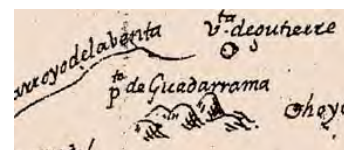 arroyo de la benta
vta de outierre
pta de Guadarrama
ohoyo